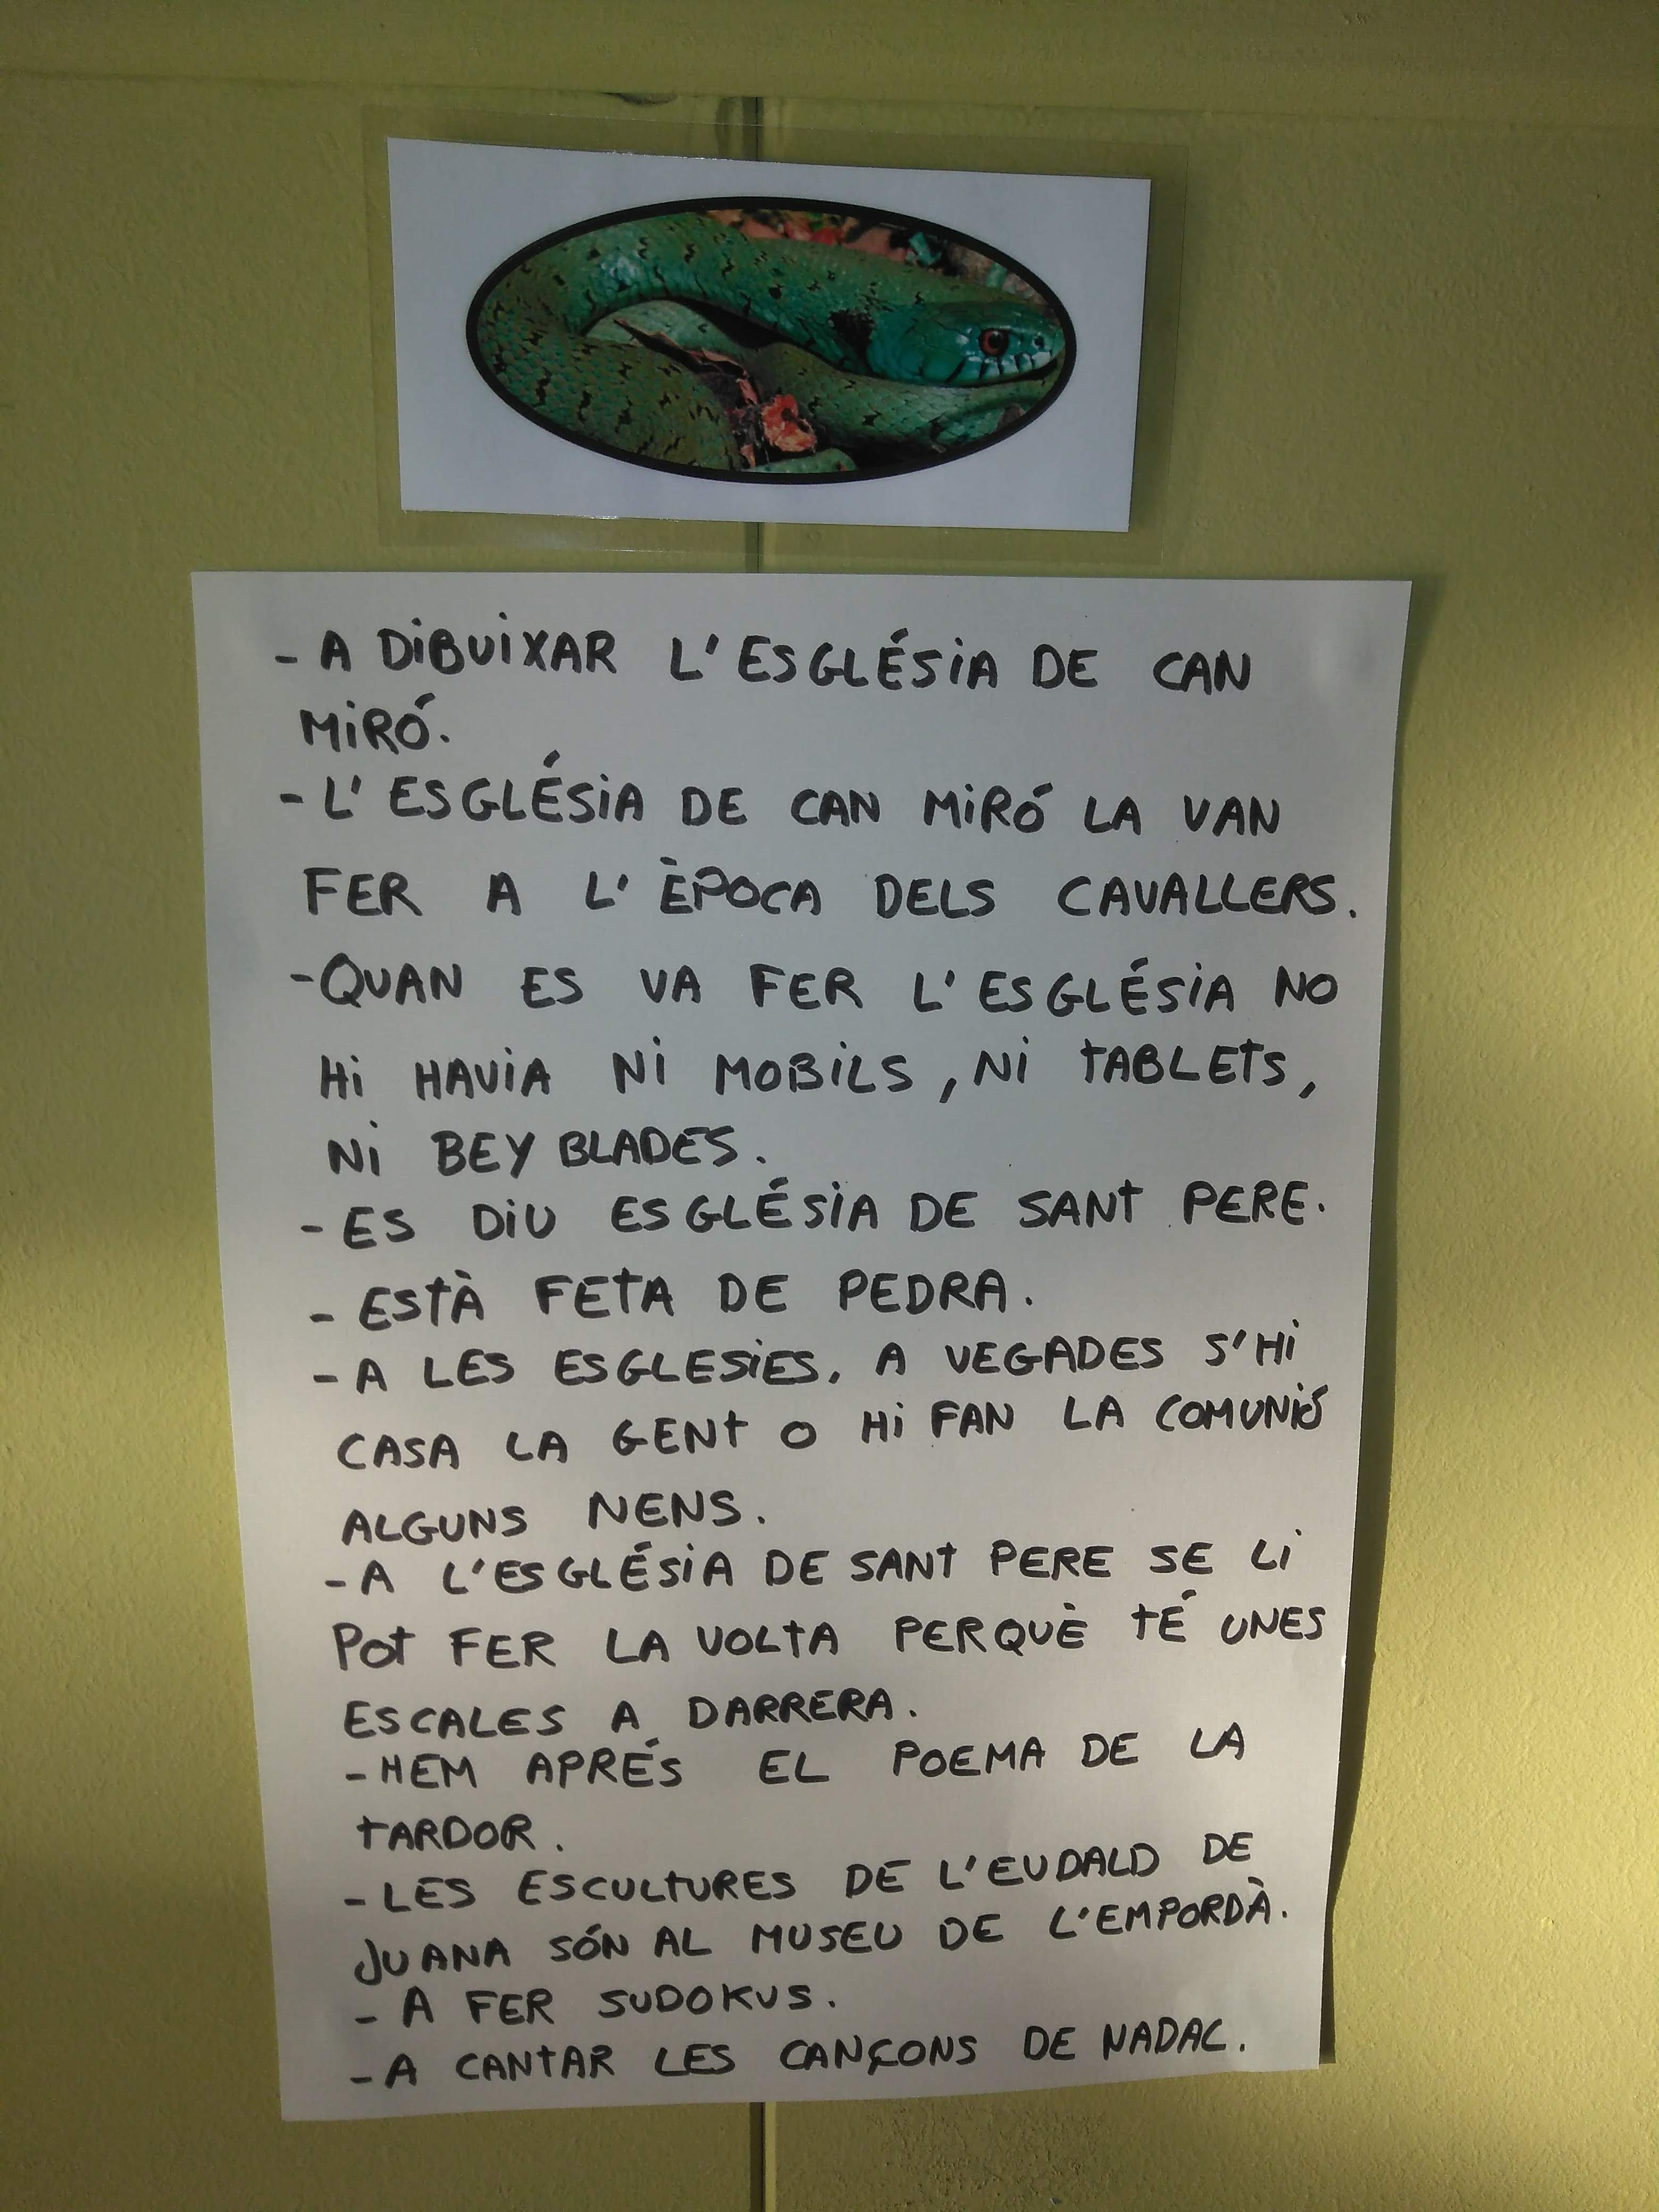 - A DiBUiXAR L'ESGLÉSiA DE CAN
MiRÓ.
- L'ESGLÉSiA DE CAN MiRÓ LA VAN
FER A L'ÈPOCA DELS CAVALLERS.
- QUAN ES VA FER L'ESGLÉSiA NO
Hi HAViA Ni MOBiLS, Ni TABLETS,
Ni BEY BLADES.
- ES DiU ESGLÉSiA DE SANT PERE.
- ESTÀ FETA DE PEDRA.
- A LES ESGLESiES, A VEGADES S'Hi
CASA LA GENT O Hi FAN LA COMUNiÓ
ALGUNS NENS.
- A L'ESGLÉSiA DE SANT PERE SE Li
POT FER LA VOLTA PERQUÈ TÉ UNES
ESCALES A DARRERA.
- HEM APRÉS EL POEMA DE LA
TARDOR.
- LES ESCULTURES DE L'EUDALD DE
JUANA SÓN AL MUSEU DE L'EMPORDÀ.
- A FER SUDOKUS.
- A CANTAR LES CANÇONS DE NADAL.